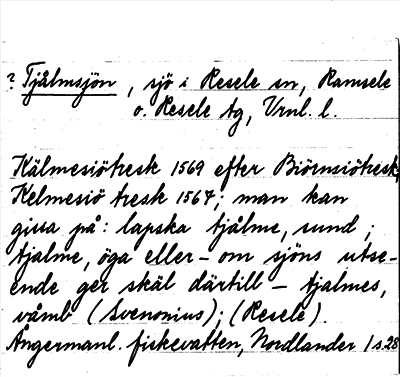 ? Tjålmsjön, sjö i Resele sn, Ramsele
o. Resele tg, Vrnl. l.
Kälmesiötresk 1569 efter Biörnsiötresk,
Kelmesiö tresk 1567; man kan
gissa på: lapska tjålme, sund;
tjalme, öga eller – om sjöns utse-
ende ger skäl därtill – tjalmes,
våmb (Svenonius); (Resele).
Ångermanl. fiskevatten, Nordlander 1 s.28